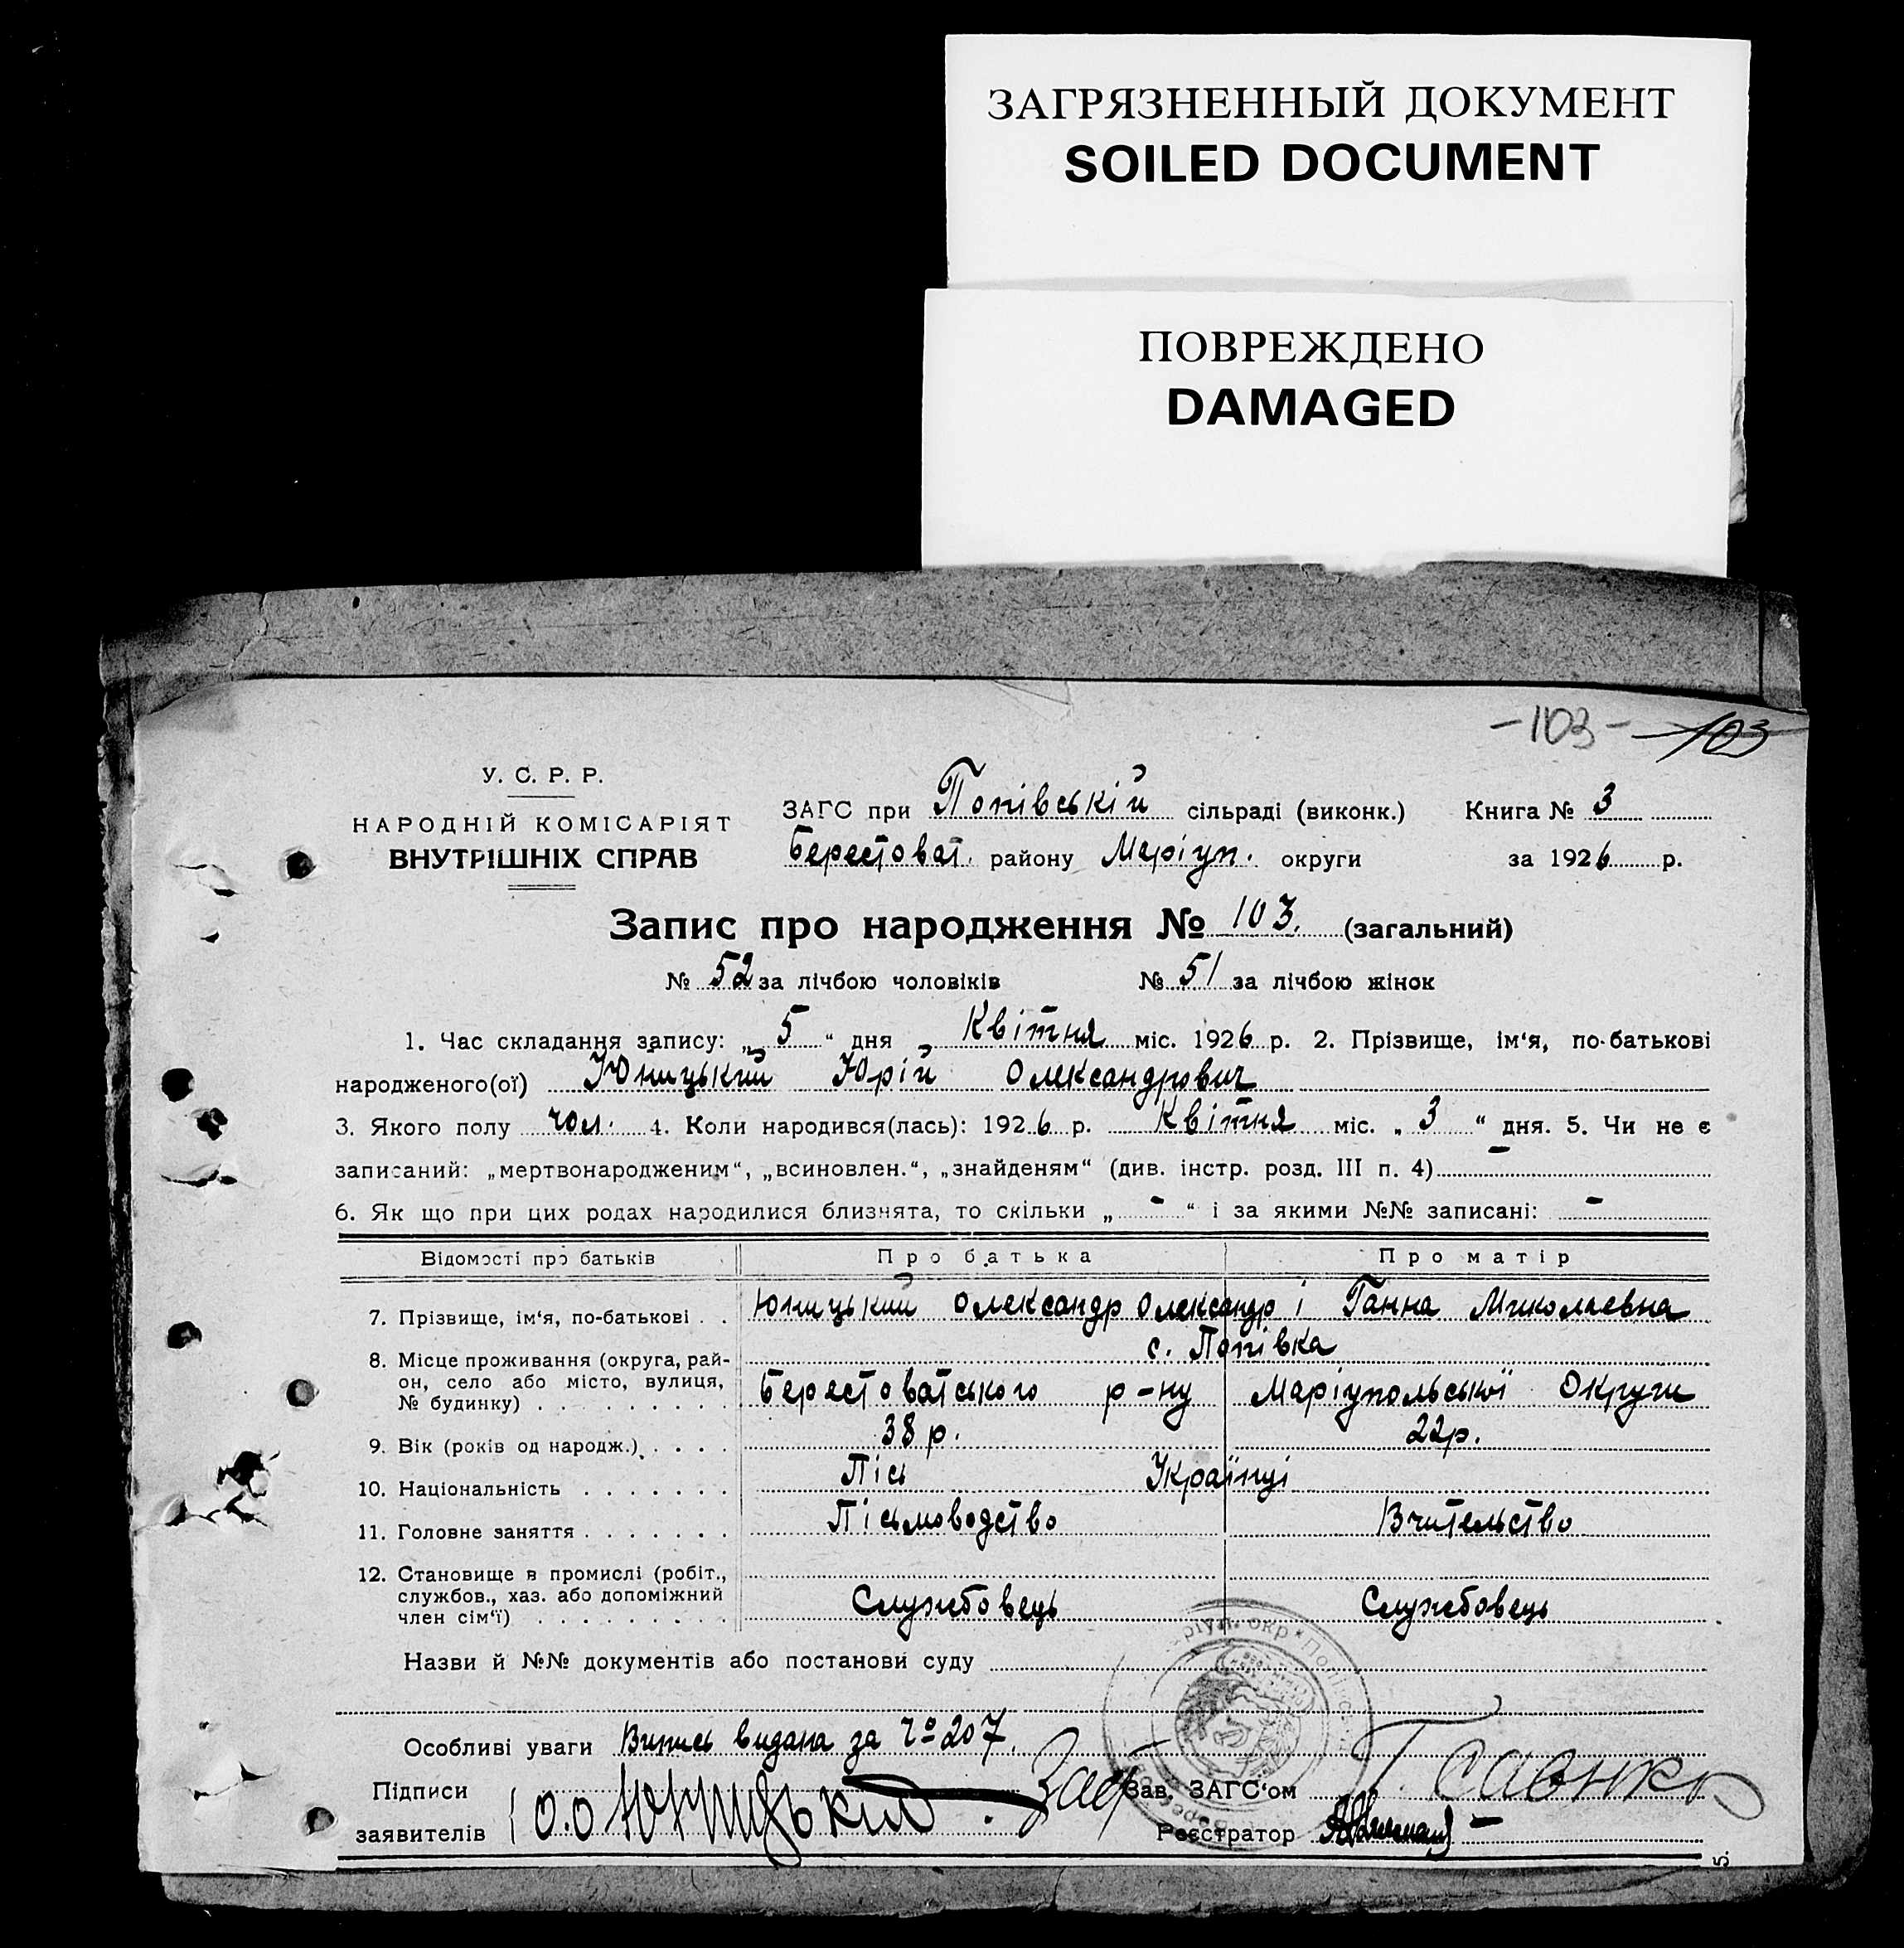 ЗАГРЯЗНЕННЫЙ ДОКУМЕНТ
SOILED DOCUMENT
ПОВРЕЖДЕНО
DAMAGED
-103- 103
У. С. Р. Р.
НАРОДНІЙ КОМІСАРІЯТ
ВНУТРІШНІХ СПРАВ
ЗАГС при Попівській сільраді (виконк.) Книга № 3
Берестоват. району Маріуп. округи за 1926 р.
Запис про народження № 103. (загальний)
№ 52 за лічбою чоловіків № 51 за лічбою жінок
1. Час складання запису: „ 5 “ дня Квітня міс. 1926 р. 2. Прізвище, ім‘я, по-батькові
народженого(ої) Юницький Юрій Олександрович
3. Якого полу чол. 4. Коли народився(лась): 1926 р. Квітня міс. „ 3 “ дня. 5. Чи не є
записаний: „мертвонародженим“, „всиновлен.“, „знайденям“ (див. інстр. розд. III п. 4) -
6. Як що при цих родах народилися близнята, то скільки „ - “ і за якими №№ записані: -
Відомості про батьків Про батька Про матір
7. Прізвище, ім‘я, по-батькові . . Юницький Олександр Олександр і Ганна Миколаевна
с. Попівка
8. Місце проживання (округа, рай-
он, село або місто, вулиця,
№ будинку) . . . . . . . . . Берестоватського р-ну Маріупольської Округи
9. Вік (років од народж.) . . . . 38 р. 22р.
10. Національність . . . . . . . Пісь Українці
11. Головне заняття . . . . . . . Пісьмоводство Вчительство
12. Становище в промислі (робіт.,
службов., хаз. або допоміжний
член сім‘ї) . . . . . . . . Службовець Службовець
Назви й №№ документів або постанови суду
Особливі уваги Випись видана за ч° 207.
Підписи
заявителів О.О Юницький. Зав
Зав. ЗАГС‘ом Г. Савенко
Реєстратор
5.